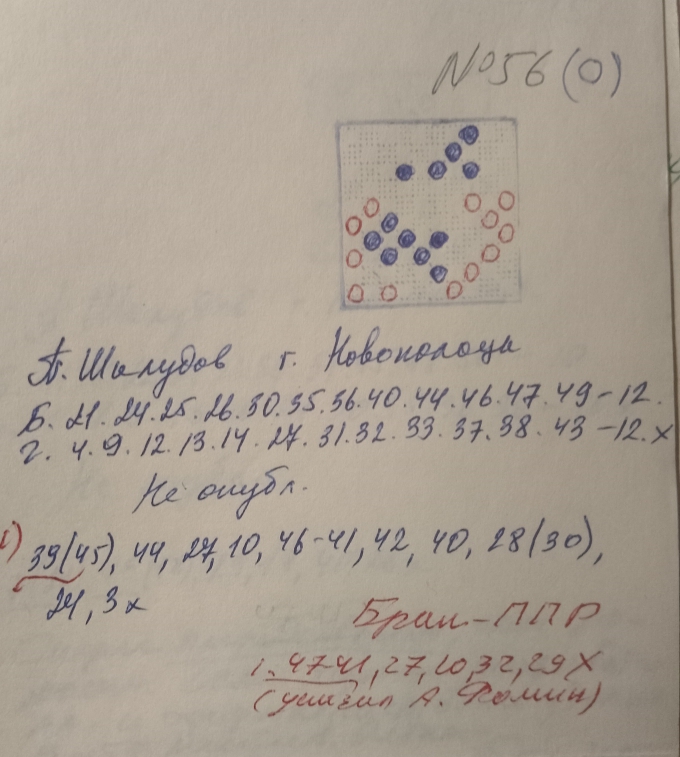 №56 (0)
А. Шалудов г. Новополоцк
Б. 21. 24. 25. 26. 30. 35. 36. 40. 44. 46. 47. 49 - 12.
Г. 4. 9. 12. 13. 14. 27. 31. 32. 33. 37. 38. 43 - 12. х
Не опубл.
1) 39(45), 44, 27, 10, 46-41, 42, 40, 28(30),
24, 3х
Брак - ППР
1. 47-41, 27, 20, 32, 29Х
(усилил А. Фомин)